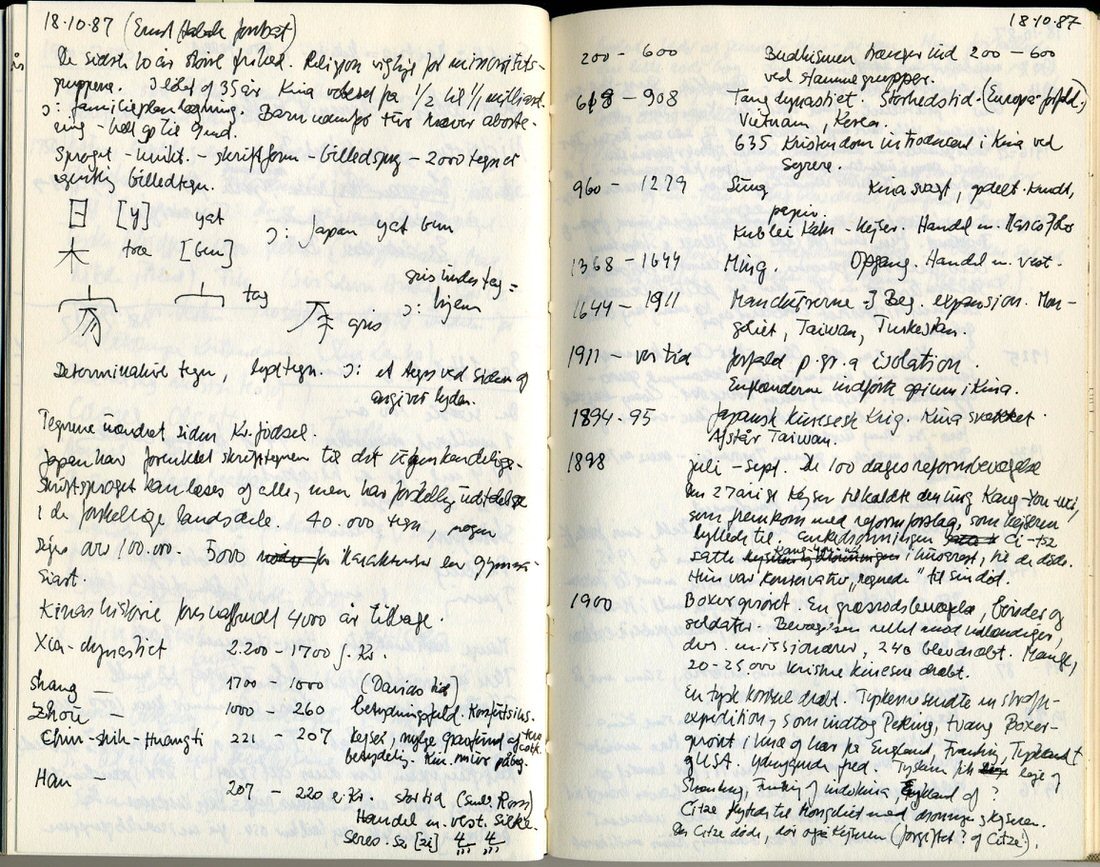 18.10.87 (Ernst
De sidste 10 år større frihed. Religion vigtig for minoritets-
gruppern. I løbet af 35 år Kina vokset fra 1/2 til 1 milliard.
ɔ: familieplanlægning. Barn
ning - helt op til 9 md.
Sproget - unikt. - skriftform - billedsprog - 2000 tegn er
egentlig billedtegn.
日 [y] yat
木 træ [bun]
ɔ: Japan yat bun
gris under tag =
tag
ɔ: hjem
gris
Determinativ tegn, lydtegn. ɔ: et tegn ved siden af
angiver lyden.
Tegnene uændret siden Kr. fødsel.
Japan har forenklet skrifttegnene til det
Skriftsproget kan læses af alle, men har forskellig udtalelse
i de forskellige landsdele. 40.000 tegn, nogen
siger ca 100.000. 5000 karakterer en gymna-
siast.
Kinas historie 4000 år tilbage.
Xia-dynastiet 2.200-1700 f. Kr.
Shang — 1700 - 1000 (Davids tid)
Zhou — 1000 - 260 betydningsfuld. Konfutsius.
Chin-Shih-Huangti 221 - 207 kejser, mægtige
betydelig. Kin. mur påbeg.
Han — 207 - 220 e. Kr. stortid (som Rom)
Handel m. vest. Silke.
Seres. Si [zi]
18.10.87
200 - 600 Budhismen trænger ind 200 - 600
ved stammegrupper.
618 - 908 Tangdynastiet. Storhedstid. (Europa forfald.)
Vietnam, Korea.
635 Kristendom introduceret i Kina ved
Syrere.
960 - 1279 Sung Kina svagt, opdelt. Krudt,
papir.
Kublei Kahn - Kejser. Handel m. Marco Polo
1368 - 1644 Ming. Opgang. Handel m. vest.
1644 - 1911 Manchuerne - Beg. expansion. Mon-
goliet, Taiwan, Turkestan.
1911 - vor tid forfald p. gr. a isolation.
Englænderne indførte opium i Kina.
1894-95 Japansk kinesisk krig. Kina svækket.
Afstår Taiwan.
1898 juli - Sept. De 100 dages reformbevægelse
Den 27 årige Kejser tilkaldte den unge Kang-You-wei,
som fremkom med reformforslag, som kejseren
hyllede til. Enkedronningen Ci-tze
satte Kang-You-wei i husarrest, til de døde.
Hun var konservativ, "regnede" til sin død.
1900 Bokseroprøret. En græsrodsbevægelse, bønder og
soldater. Bevægelsen rettet mod udlændinge,
dvs. missionærer, 240 blev dræbt. Mange,
20-25000 kristne kinesere dræbt.
En tysk konsul dræbt. Tyskerne sendte en straffe-
expedition, som indtog Peking, tvang Bokser-
oprøret i knæ og har på England, Frankrig, Tyskland
og USA. fred. Tyskland fik leje af
Shantung, Frankrig Indokina, England af ?
Citze flygtede
Da Citze døde, dør også Kejseren (forgiftet? af Citze!).